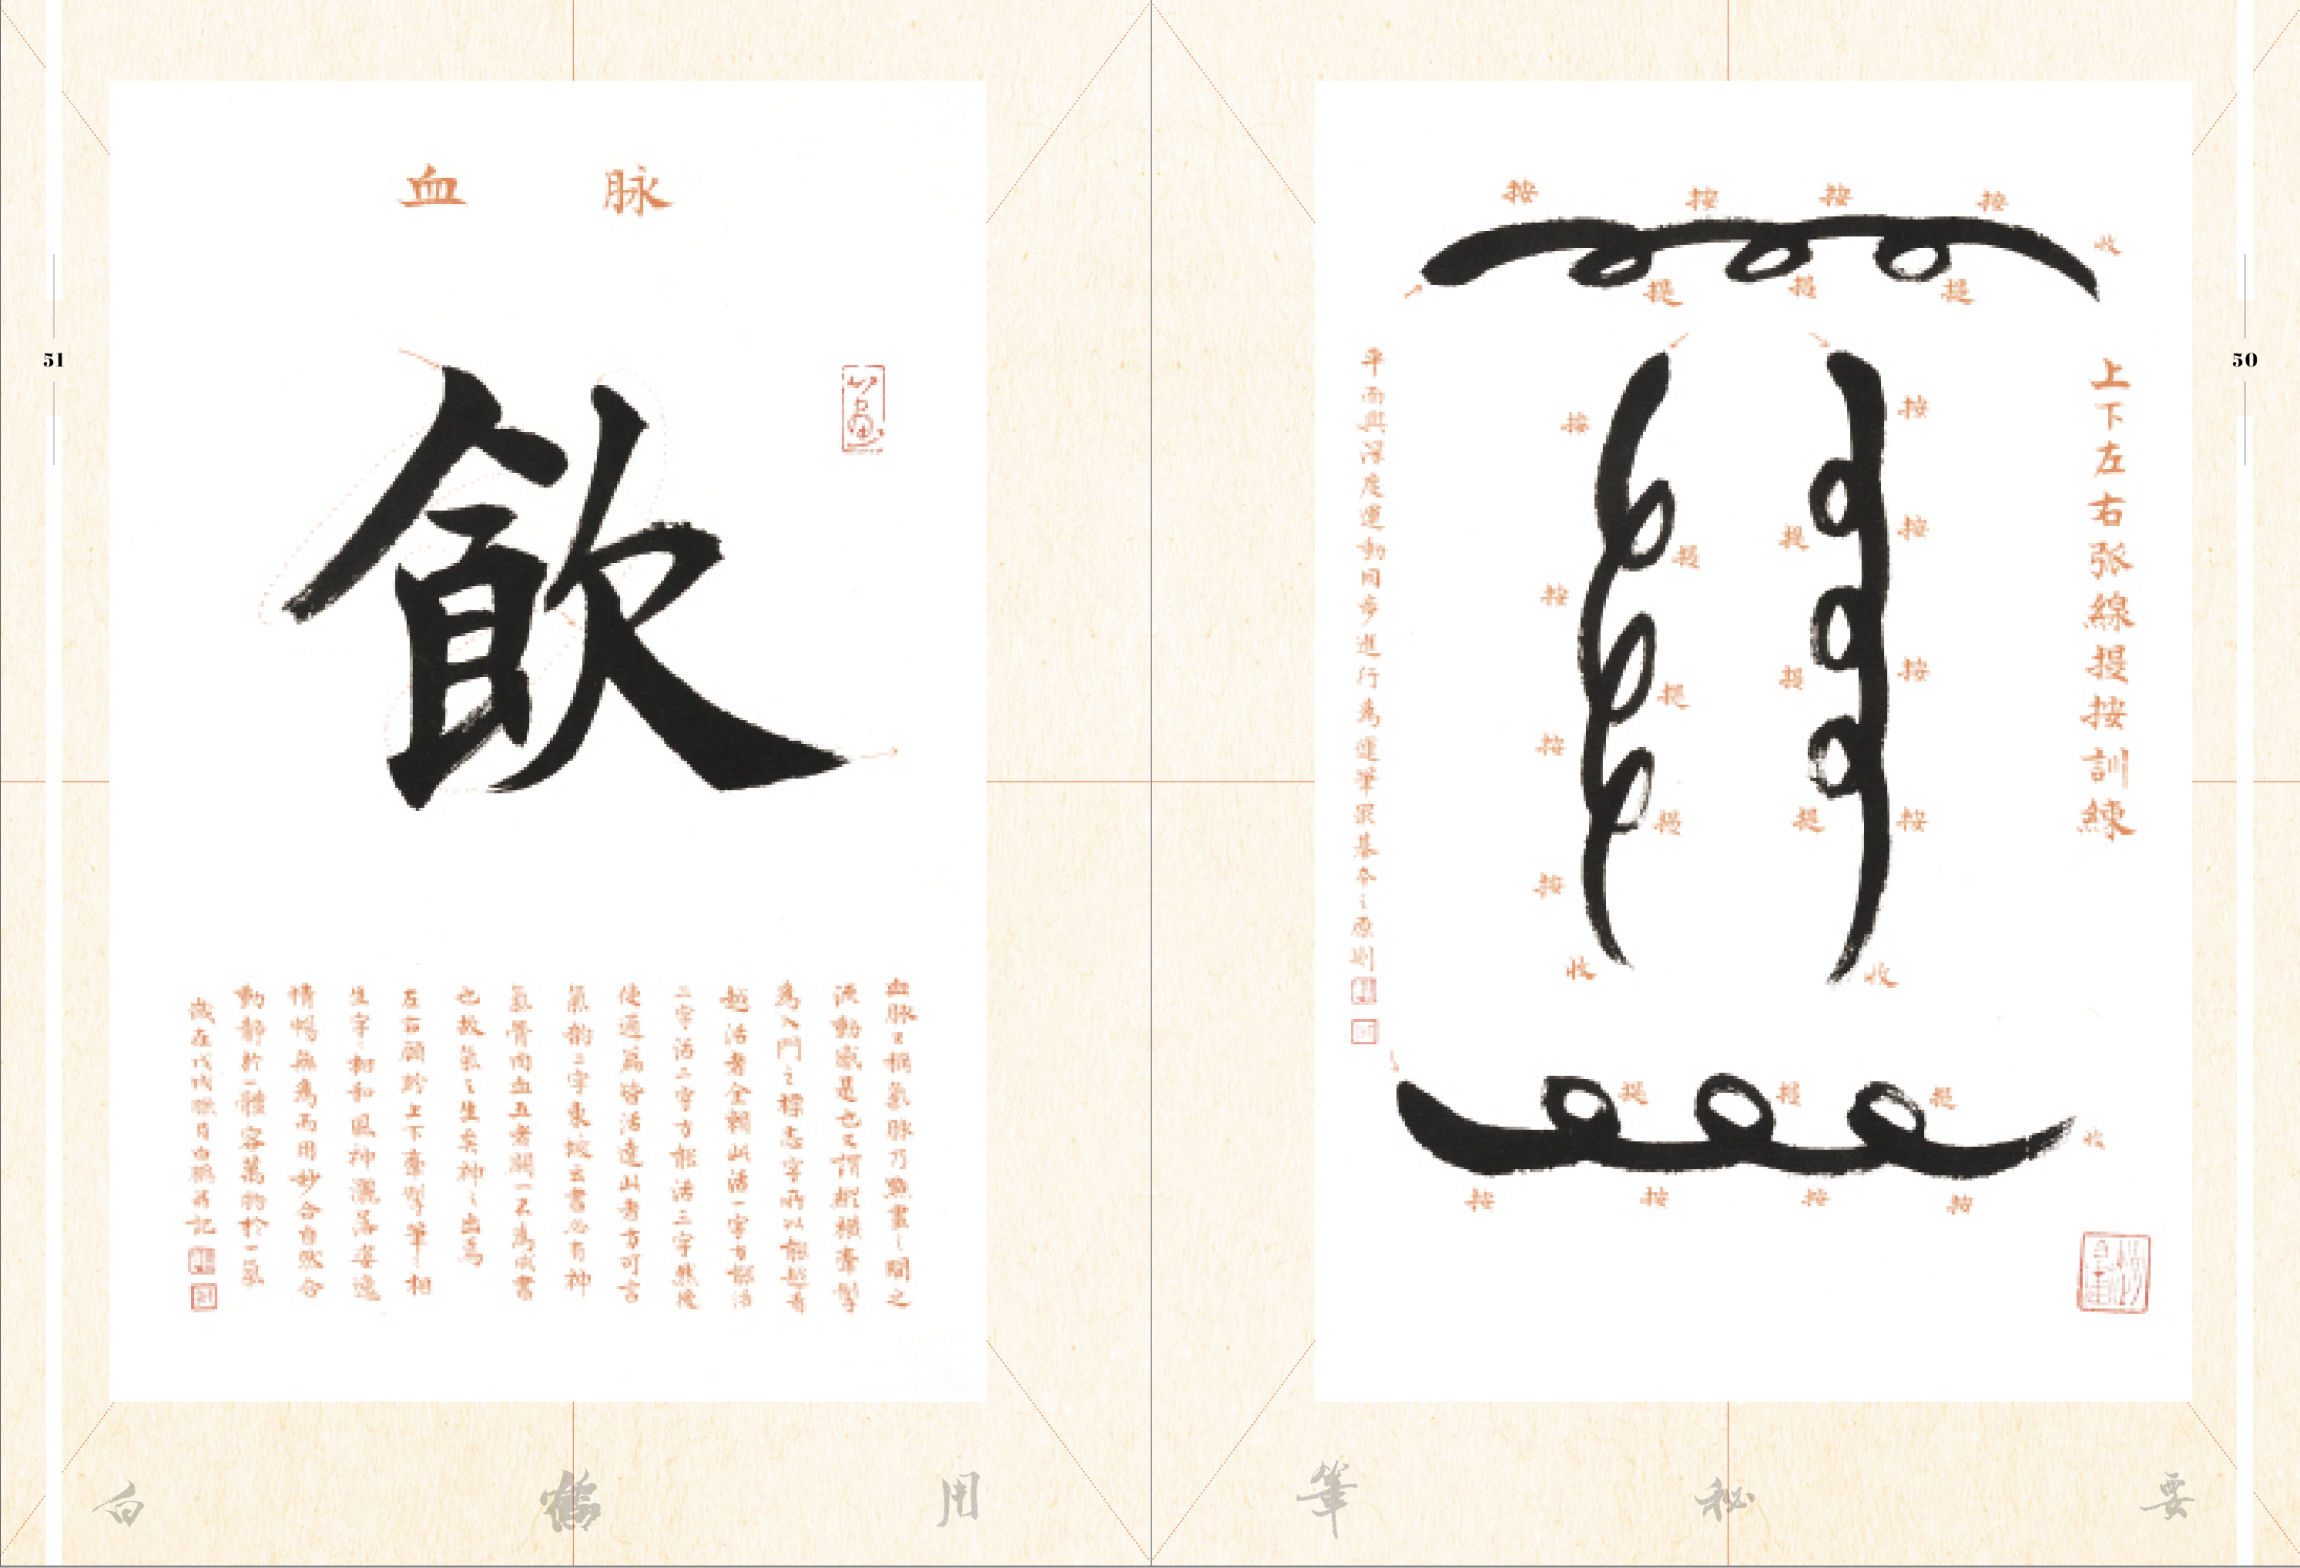 50
上下左右弧線提按訓練
按
按
按
按
收
提
提
提
按
按
按
按
提
提
提
收
按
按
按
按
提
提
提
收
提
提
提
收
按
按
按
按
平面與深度運動同步進行為運筆最基本之原則
51
血脉
飲
血脉又稱氣脉乃點畫之間之
流動感是也又謂縱橫牽掣
為入門之標志字所以能超者
超活者全賴此活一字方能活
二字活二字方能活三字然後
使通篇皆活達此者方可言
氣韵二字東坡云書必有神
氣骨肉血五者闕一不為成書
也故氣之生矣神之出焉
左右顧盼上下牽掣筆筆相
生字字相和風神灑落姿逸
情暢無為而用妙合自然合
動靜於一體容萬物於一氣
歲在戊戌臘月白鶴翁記
白鶴用筆秘要